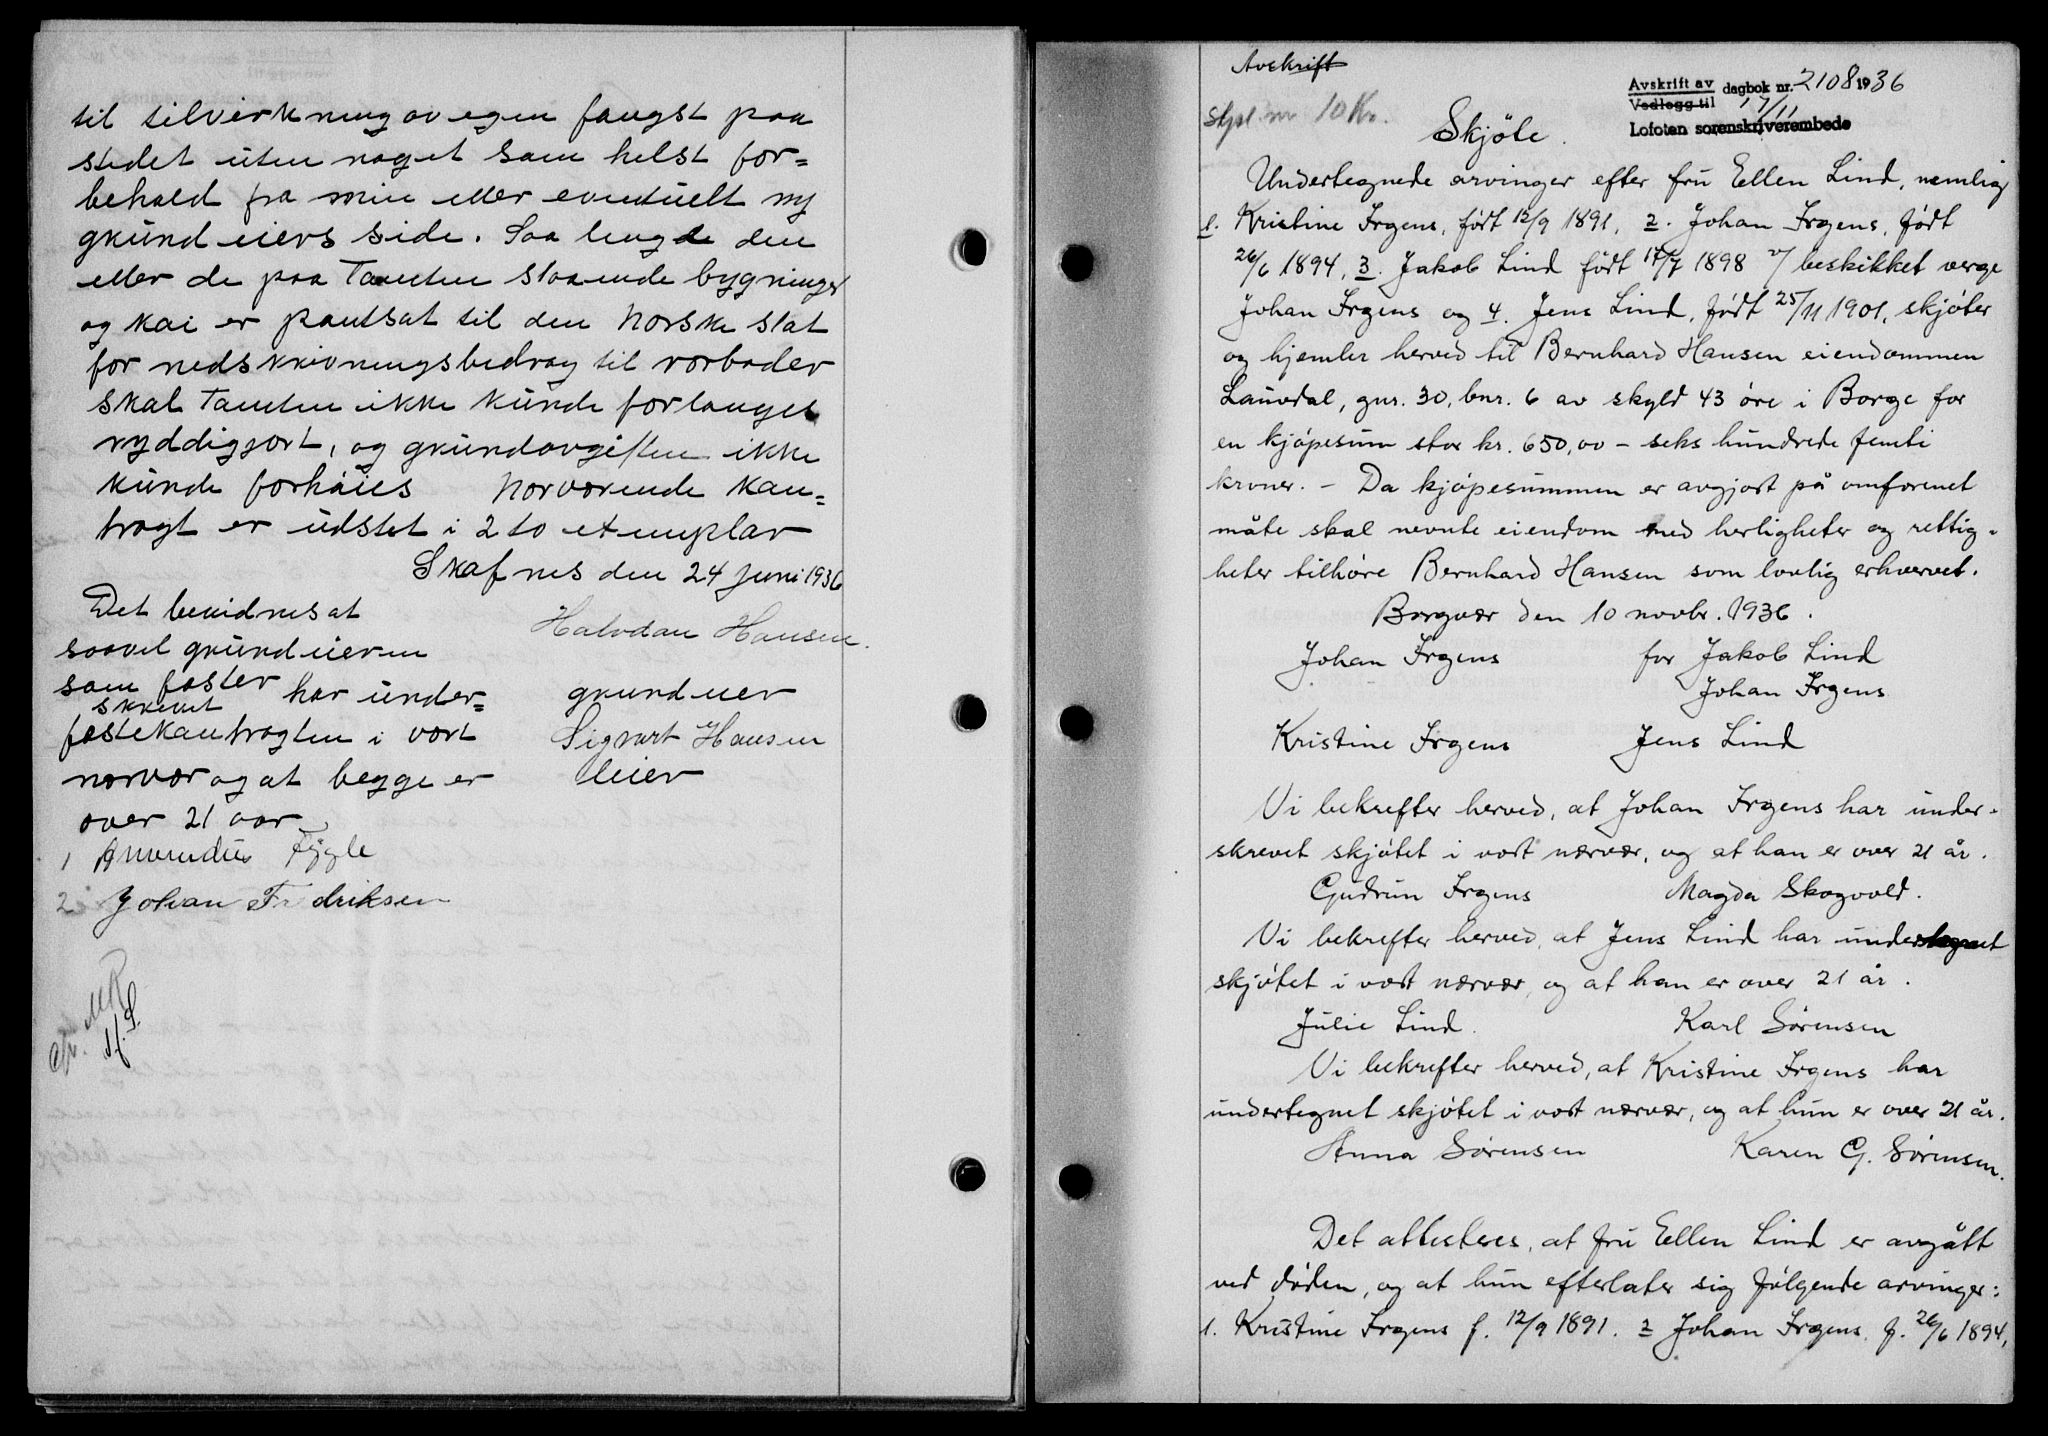 til tilvirkning av egen fangst paa
stedet uten noget som helst for=
behold fra min eller eventuelt ny
grund eiers side. Saa lengde den
eller de paa Tamten staaende bygninger
og kai er pantsat til den Norske stat
for nedskrivningsbedrag til rorboder
skal Tamten ikke kunde forlanges
ryddigjort, og grundavgiften ikke
kunde forhøies Nærværende kan=
tragt er udstet i 2 to exemplar
Skafnes den 24 juni 1936
Det bevidnes at
saavel grundeieren
som fæster har under=
skrevet
festekantragten i vort
nærvær og at begge er
over 21 aar
Halvdan Hansen.
grundeier
Sigvart Hansen
leier
1 Amandus Fygle
2 Johan Fredriksen
Avskrift
Avskrift av dagbok nr. 2108 1936
Vedlegg til 17/11
Lofoten sorenskriverembede
10 Kr.
Skjøte.
Undertegnede arvinger efter fru Ellen Lind, nemlig
1. Kristine Irgens, født 12/9 1891, 2. Johan Irgens, født
26/6 1894, 3. Jakob Lind født 17/7 1898 v/ beskikket verge
Johan Irgens og 4. Jens Lind, født 25/11 1901, skjøter
og hjemler herved til Bernhard Hansen eiendommen
Lauvdal, gnr. 30, bnr. 6 av skyld 43 øre i Borge for
en kjøpesum stor kr. 650,00 – seks hundrede femti
kroner. – Da kjøpesummen er avgjort på omforenet
måte skal nevnte eiendom med herligheter og rettig-
heter tilhøre Bernhard Hansen som lovlig erhvervet.
Borgvær den 10 novbr. 1936.
Johan Irgens for Jakob Lind
Johan Irgens
Kristine Irgens Jens Lind
Vi bekrefter herved, at Johan Irgens har under-
skrevet skjøtet i vort nærvær, og at han er over 21 år.
Gudrun Irgens Magda Skogvold.
Vi bekrefter herved, at Jens Lind har undertegnet
skjøtet i vort nærvær, og at han er over 21 år.
Julie Lind. Karl Sørensen
Vi bekrefter herved, at Kristine Irgens har
undertegnet skjøtet i vort nærvær, og at hun er over 21 år.
Anna Sørensen Karen G. Sørensen.
Det attesteres, at fru Ellen Lind er avgått
ved døden, og at hun efterlater sig følgende arvinger:
1. Kristine Irgens f. 12/9 1891. 2 Johan Irgens f. 26/6 1894,